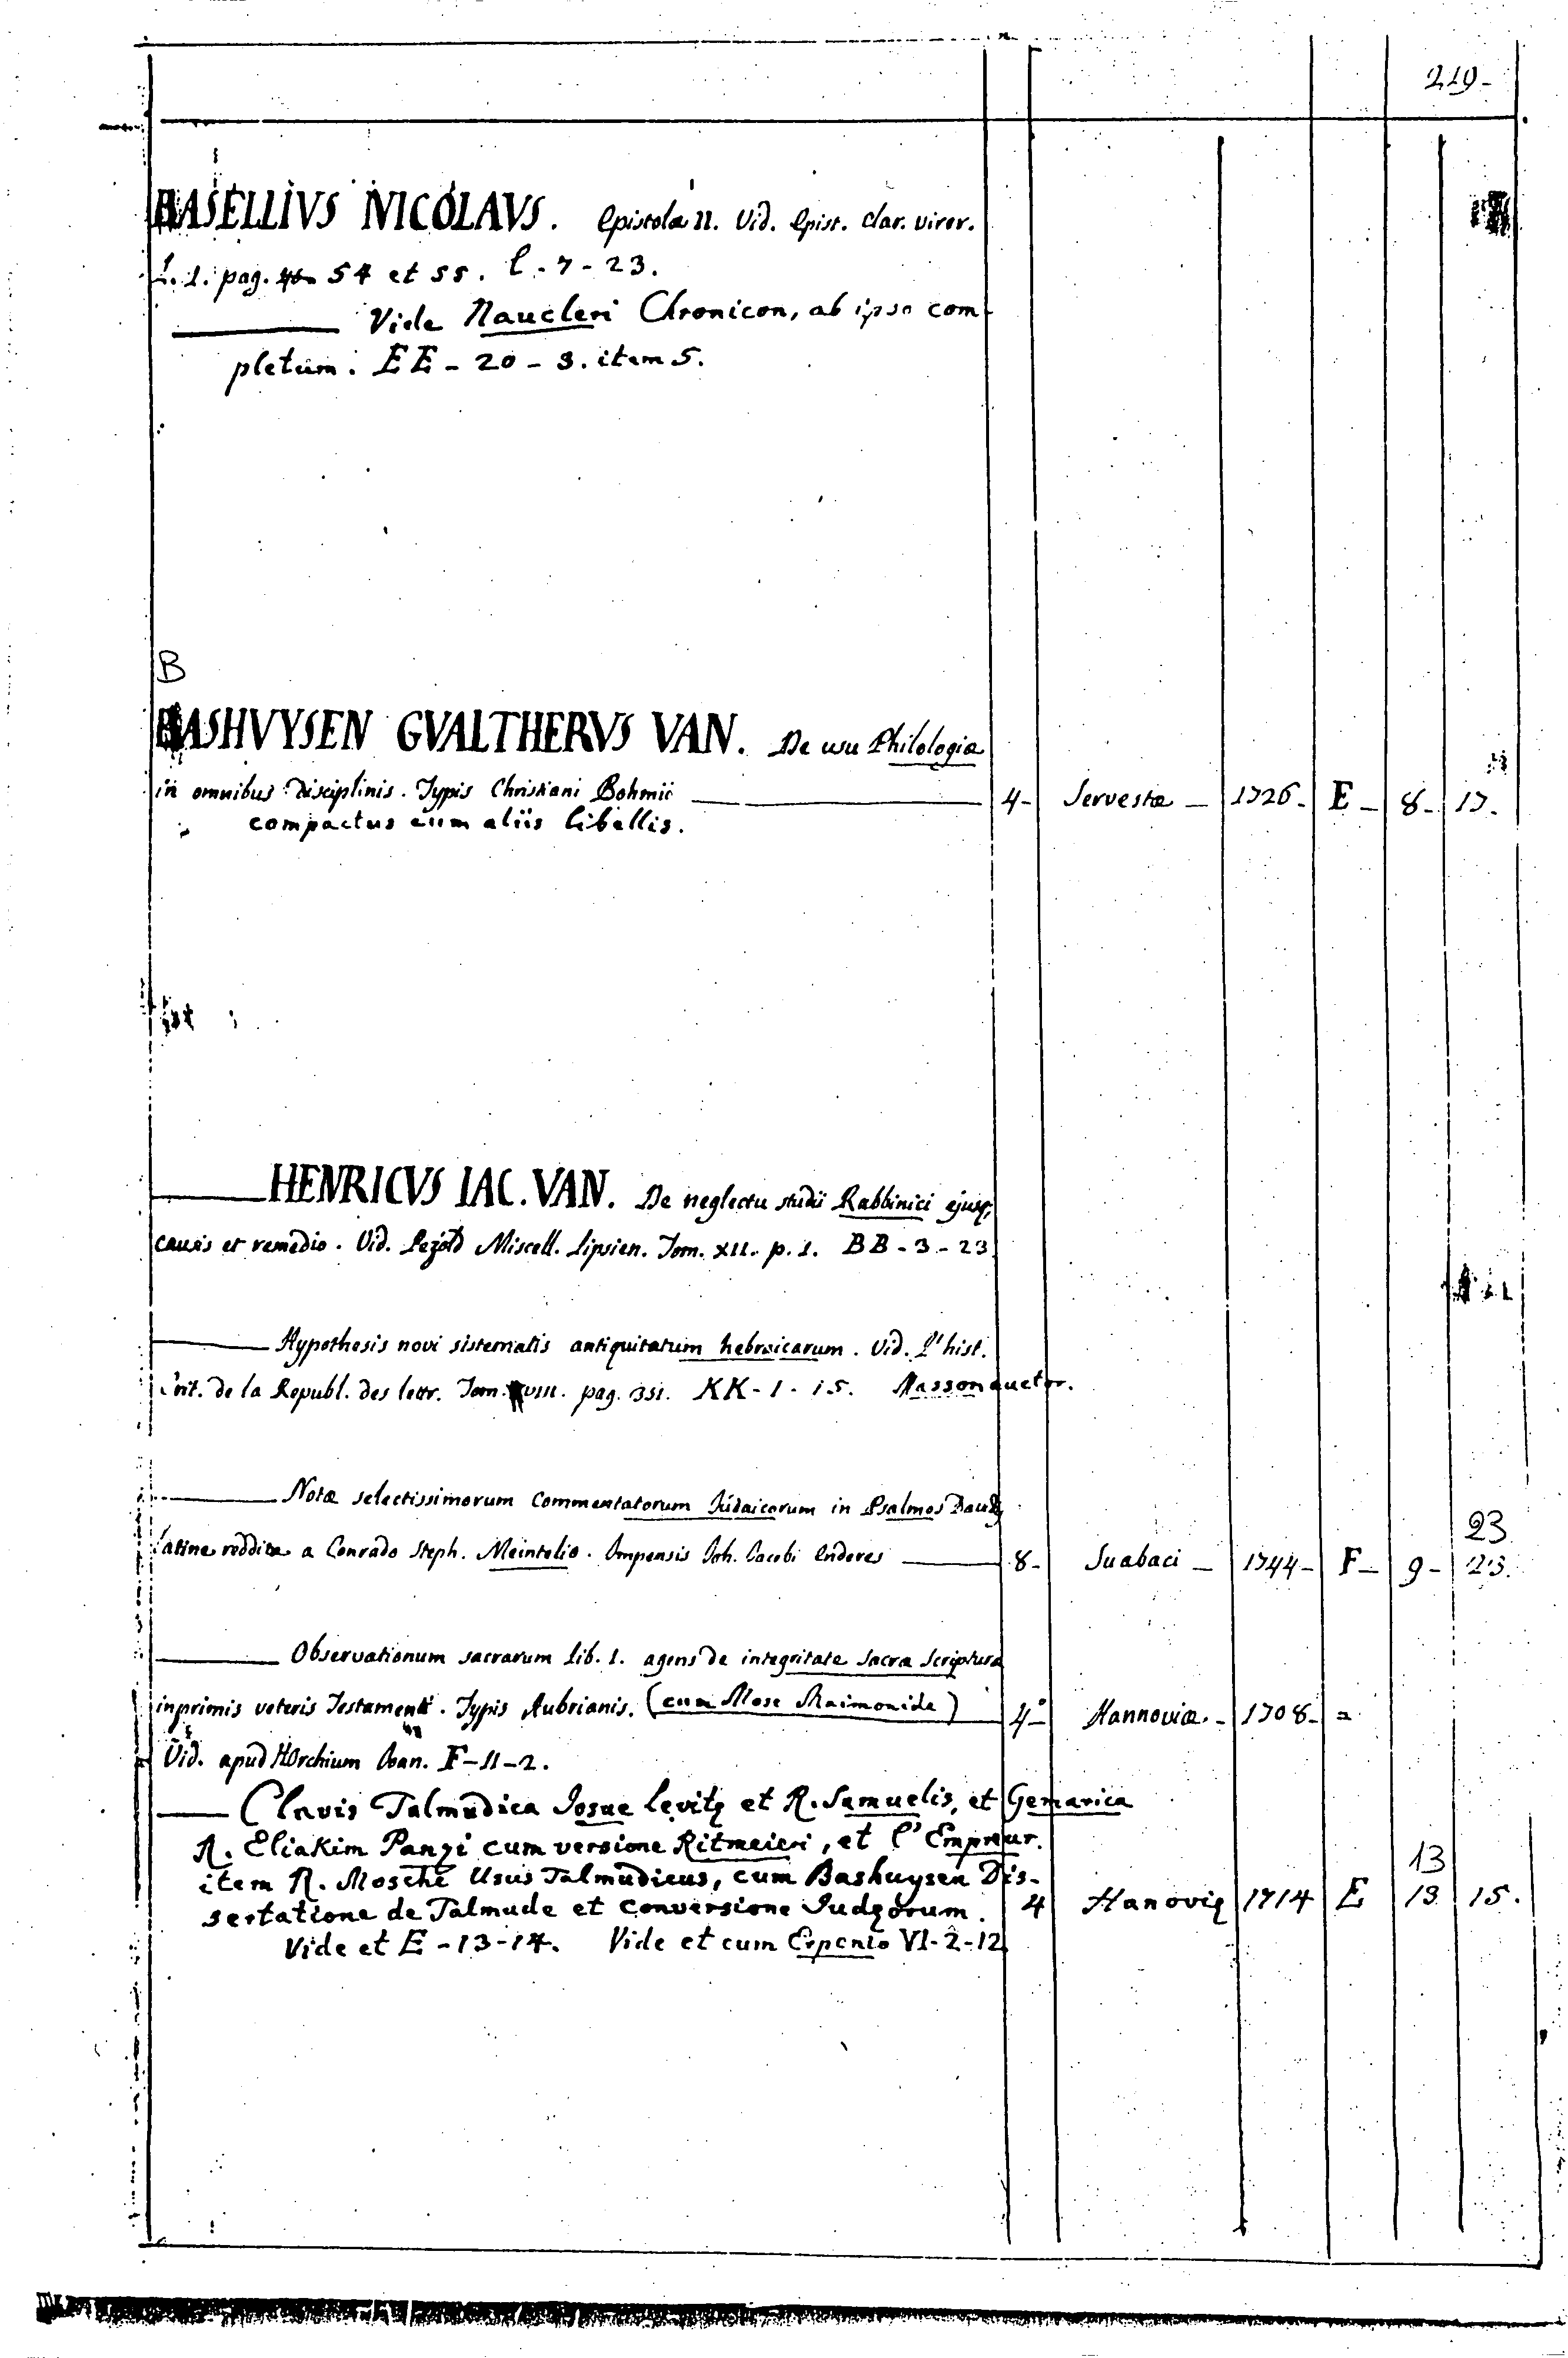 219-
BASELLIVS NICOLAVS. Epistolæ II. Vid. Epist. clar. viror.
L. 1. pag. 54 et 55. l - 7 - 23.
Vide Naucleri Chronicon, ab ipso com
pletum. EE - 20 - 3. item 5.
B
BASHVYSEN GVALTHERVS VAN. De usu Philologiæ
in omnibus disciplinis. Typis Christiani Bohmii 4- Servestæ - 1726- E - 8- 17.
compactus cum aliis libellis.
HENRICVS IAC. VAN. De neglectu studii Rabbinici ejusq;
causis et remedio. Vid. Pezold Miscell. Lipsien. Tom. XII. p. 1. BB - 3 - 23
Hypothesis novi sistematis antiquitatum hebraicarum. Vid. L'hist.
Crit. de la Republ. des lettr. Tom. VIII. pag. 351. KK - 1 - 15. Masson auctor.
Notæ selectissimorum Commentatorum Iudaicorum in Psalmos Dauid;
23
latine redditæ a Conrado Steph. Meintelio. Impensis Joh. Jacobi Enderes 8- Suabaci - 1744- F- 9- 23.
Observationum sacrarum Lib. 1. agens de integritate Sacræ Scripturæ
inprimis veteris Testamenti. Typis Aubrianis. (cum Mose Maimonide) 4- Hannoviæ. - 1708- =
Vid. apud HOrchium Ioan. F - 11 - 2.
Clavis Talmudica Josue Levitę et R. Samuelis, et Gemarica
R. Eliakim Panzi cum versione Ritmeieri, et l'Empreur.
13
item R. Mosche Usus Talmudicus, cum Bashuysen Dis-
sertatione de Talmude et conversione Judęorum. 4 Hanovię 1714 E 13 15.
Vide et E - 13 - 14. Vide et cum Erpenio VI - 2 - 12